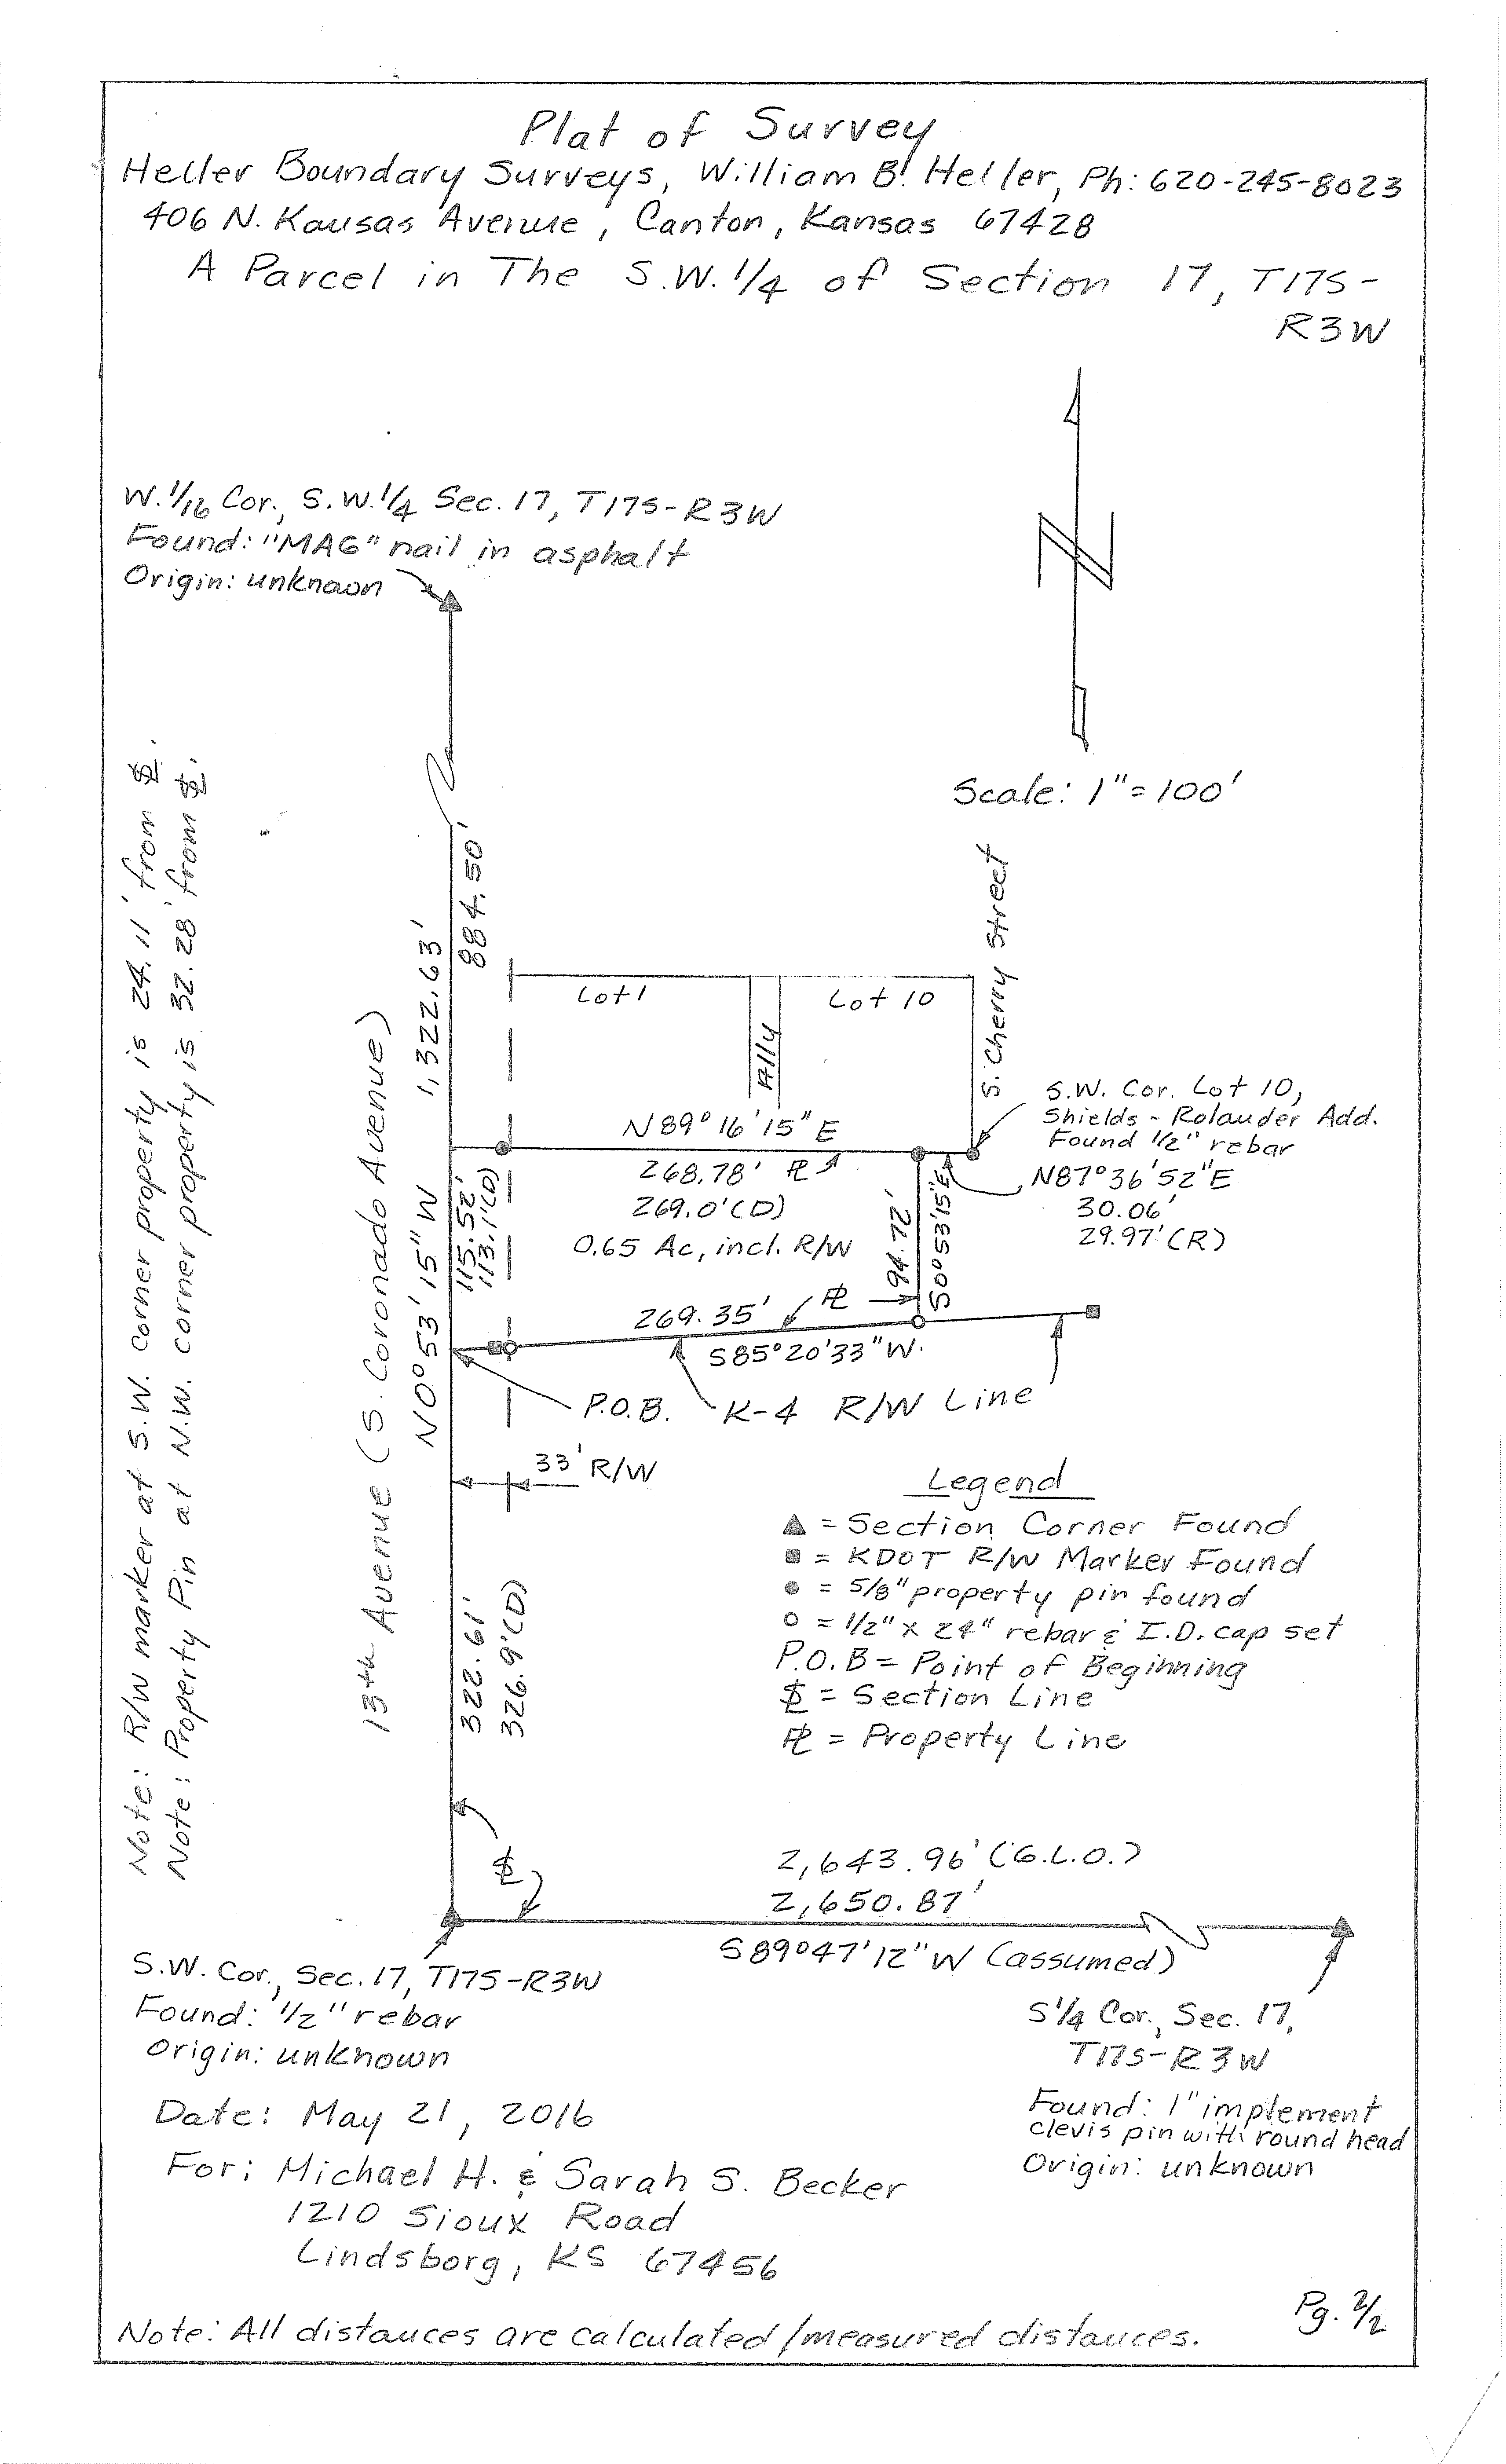 Plat of Survey
Heller Boundary Surveys, William B. Heller, Ph: 620-245-8023
406 N. Kansas Avenue, Canton, Kansas 67428
A Parcel in The S.W. 1/4 of Section 17, T17S-
R3W
W. 1/16 Cor., S.W. 1/4 Sec. 17, T17S-R3W
Found: "MAG" nail in asphalt
Origin: unknown
N
Scale: 1" = 100'
Note: R/W marker at S.W. corner property is 24.11' from SL.
Note: Property Pin at N.W. corner property is 32.28' from SL.
13th Avenue (S. Coronado Avenue)
N0°53'15"W 1,322.63'
884.50'
Lot 1
Ally
Lot 10
S. Cherry Street
S.W. Cor. Lot 10,
Shields - Rolander Add.
Found 1/2" rebar
N87°36'52"E
30.06'
29.97' (R)
N89°16'15"E
268.78' PL
269.0' (D)
0.65 Ac, incl. R/W
115.52'
113.1' (D)
94.72'
S0°53'15"E
269.35' PL
S85°20'33"W.
P.O.B.
K-4 R/W Line
33' R/W
322.61'
326.9' (D)
Legend
▲ = Section Corner Found
■ = KDOT R/W Marker Found
● = 5/8" property pin found
○ = 1/2" x 24" rebar & I.D. cap set
P.O.B = Point of Beginning
SL = Section Line
PL = Property Line
SL
2,643.96' (G.L.O.)
2,650.87'
S89°47'12"W (assumed)
S.W. Cor., Sec. 17, T17S-R3W
Found: 1/2" rebar
Origin: unknown
S 1/4 Cor., Sec. 17,
T17S-R3W
Found: 1" implement
clevis pin with round head
Origin: unknown
Date: May 21, 2016
For: Michael H. & Sarah S. Becker
1210 Sioux Road
Lindsborg, KS 67456
Pg. 2/2
Note: All distances are calculated/measured distances.